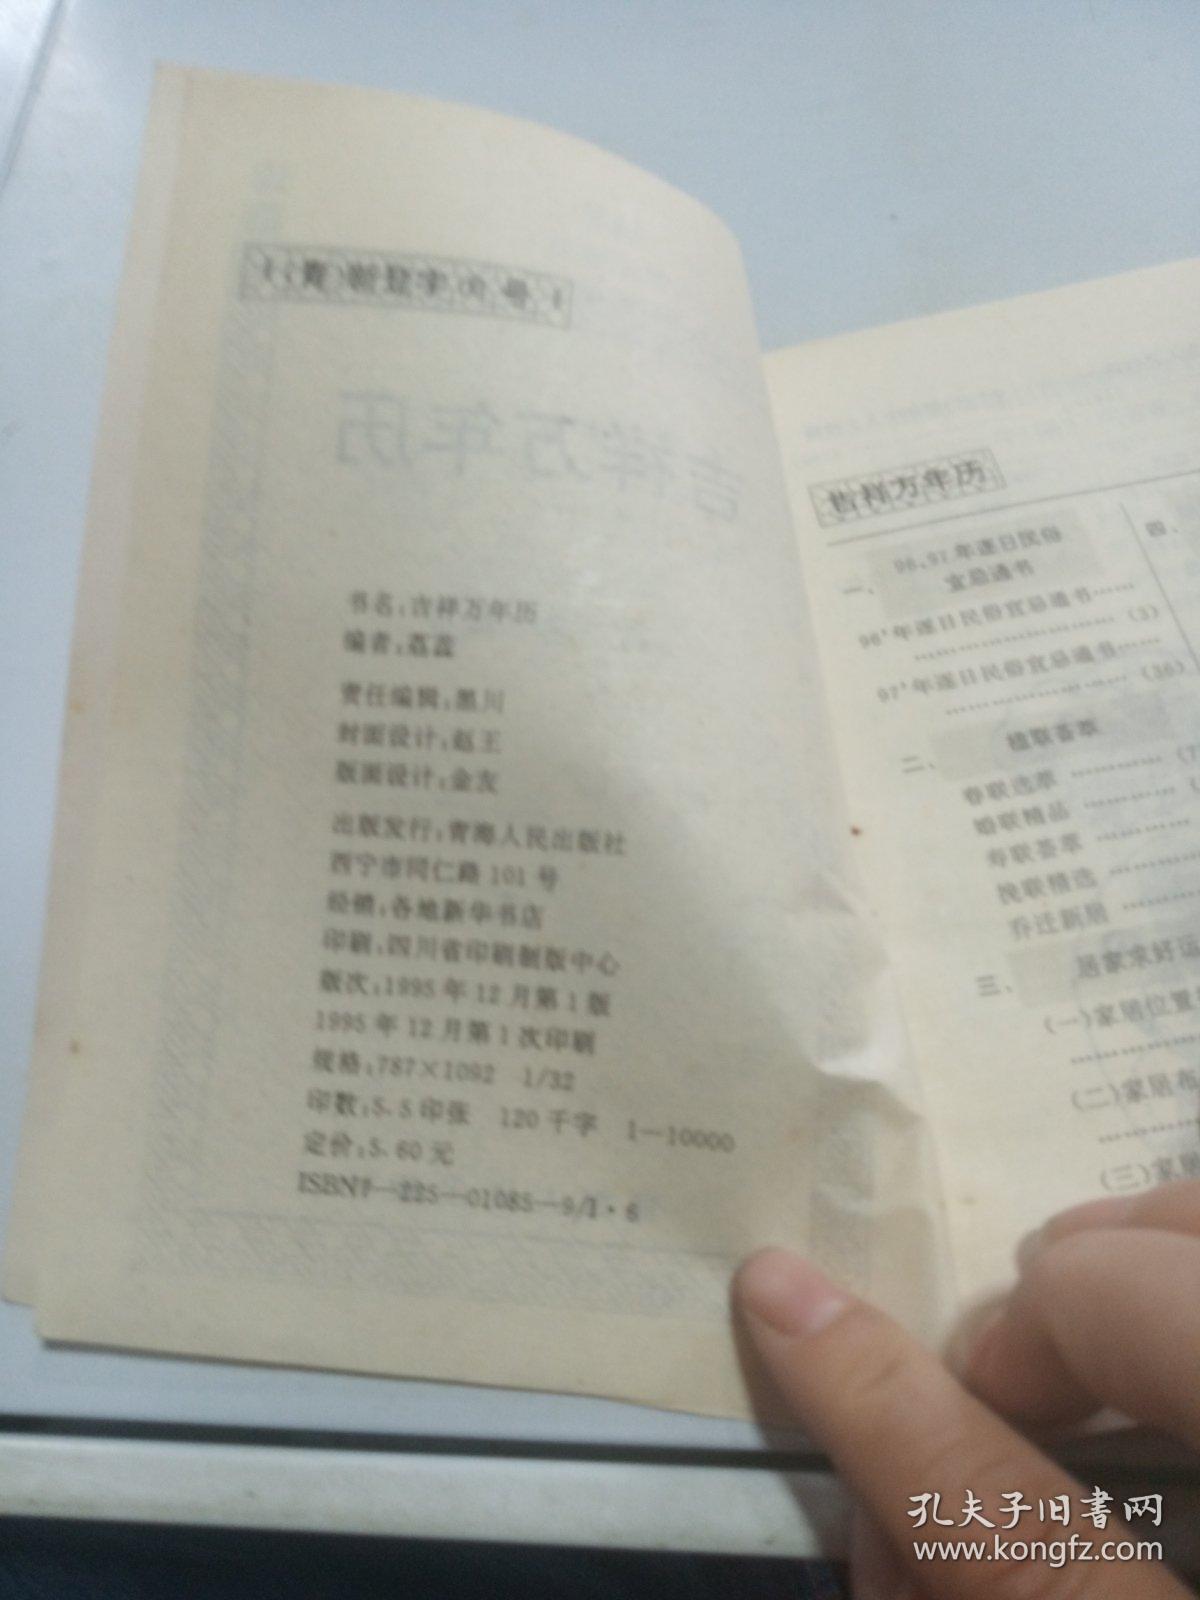 (青)新登字01号
书名:吉祥万年历
编者:荔蕊
责任编辑:黑川
封面设计:赵王
版面设计:金友
出版发行:青海人民出版社
西宁市同仁路101号
经销:各地新华书店
印刷:四川省印刷制版中心
版次:1995年12月第1版
1995年12月第1次印刷
规格:787×1092 1/32
印数:5.5印张 120千字 1—10000
定价:5.60元
ISBN7—225—01085—9/I·6
吉祥万年历
一、96、97年逐日民俗
宜忌通书
96'年逐日民俗宜忌通书……
……………………(3)
97'年逐日民俗宜忌通书……
……………………(36)
二、楹联荟萃
春联选萃 …………(7
婚联精品 …………(
寿联荟萃 …………
挽联精选 …………
乔迁新居 …………
三、居家求好运
(一)家居位置
……………
(二)家居布
……………
(三)家居
四、
孔夫子旧书网
www.kongfz.com